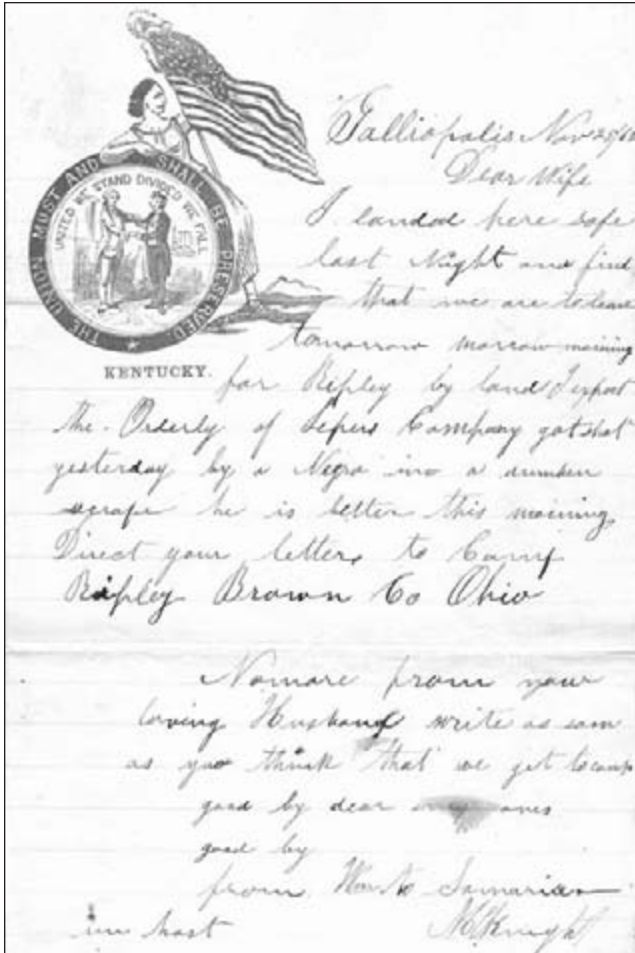 THE UNION MUST AND SHALL BE PRESERVED
UNITED WE STAND DIVIDED WE FALL
KENTUCKY.
Galliopolis Nov
Dear Wife
I landed here safe
last Night and find
that we are to leave
tomorrow morrow morning
for Ripley by land I expect
the Orderly of Company got shot
yesterday by a Negro in a drunken
scrape he is better this morning
Direct your letters to Camp
Ripley Brown Co Ohio
Nomore from your
loving Husband write as soon
as you think that we get to camp
good by dear ones
good by
from Wm to Samaria
in hast McKnight